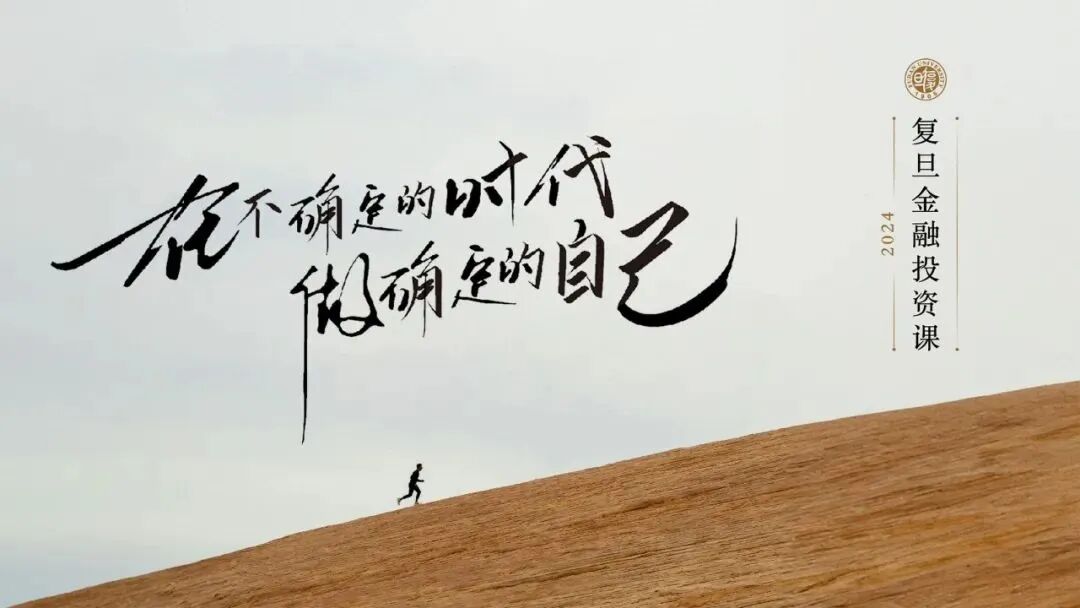 在不确定的时代
做确定的自己
复旦金融投资课
2024
FUDAN UNIVERSITY
1905